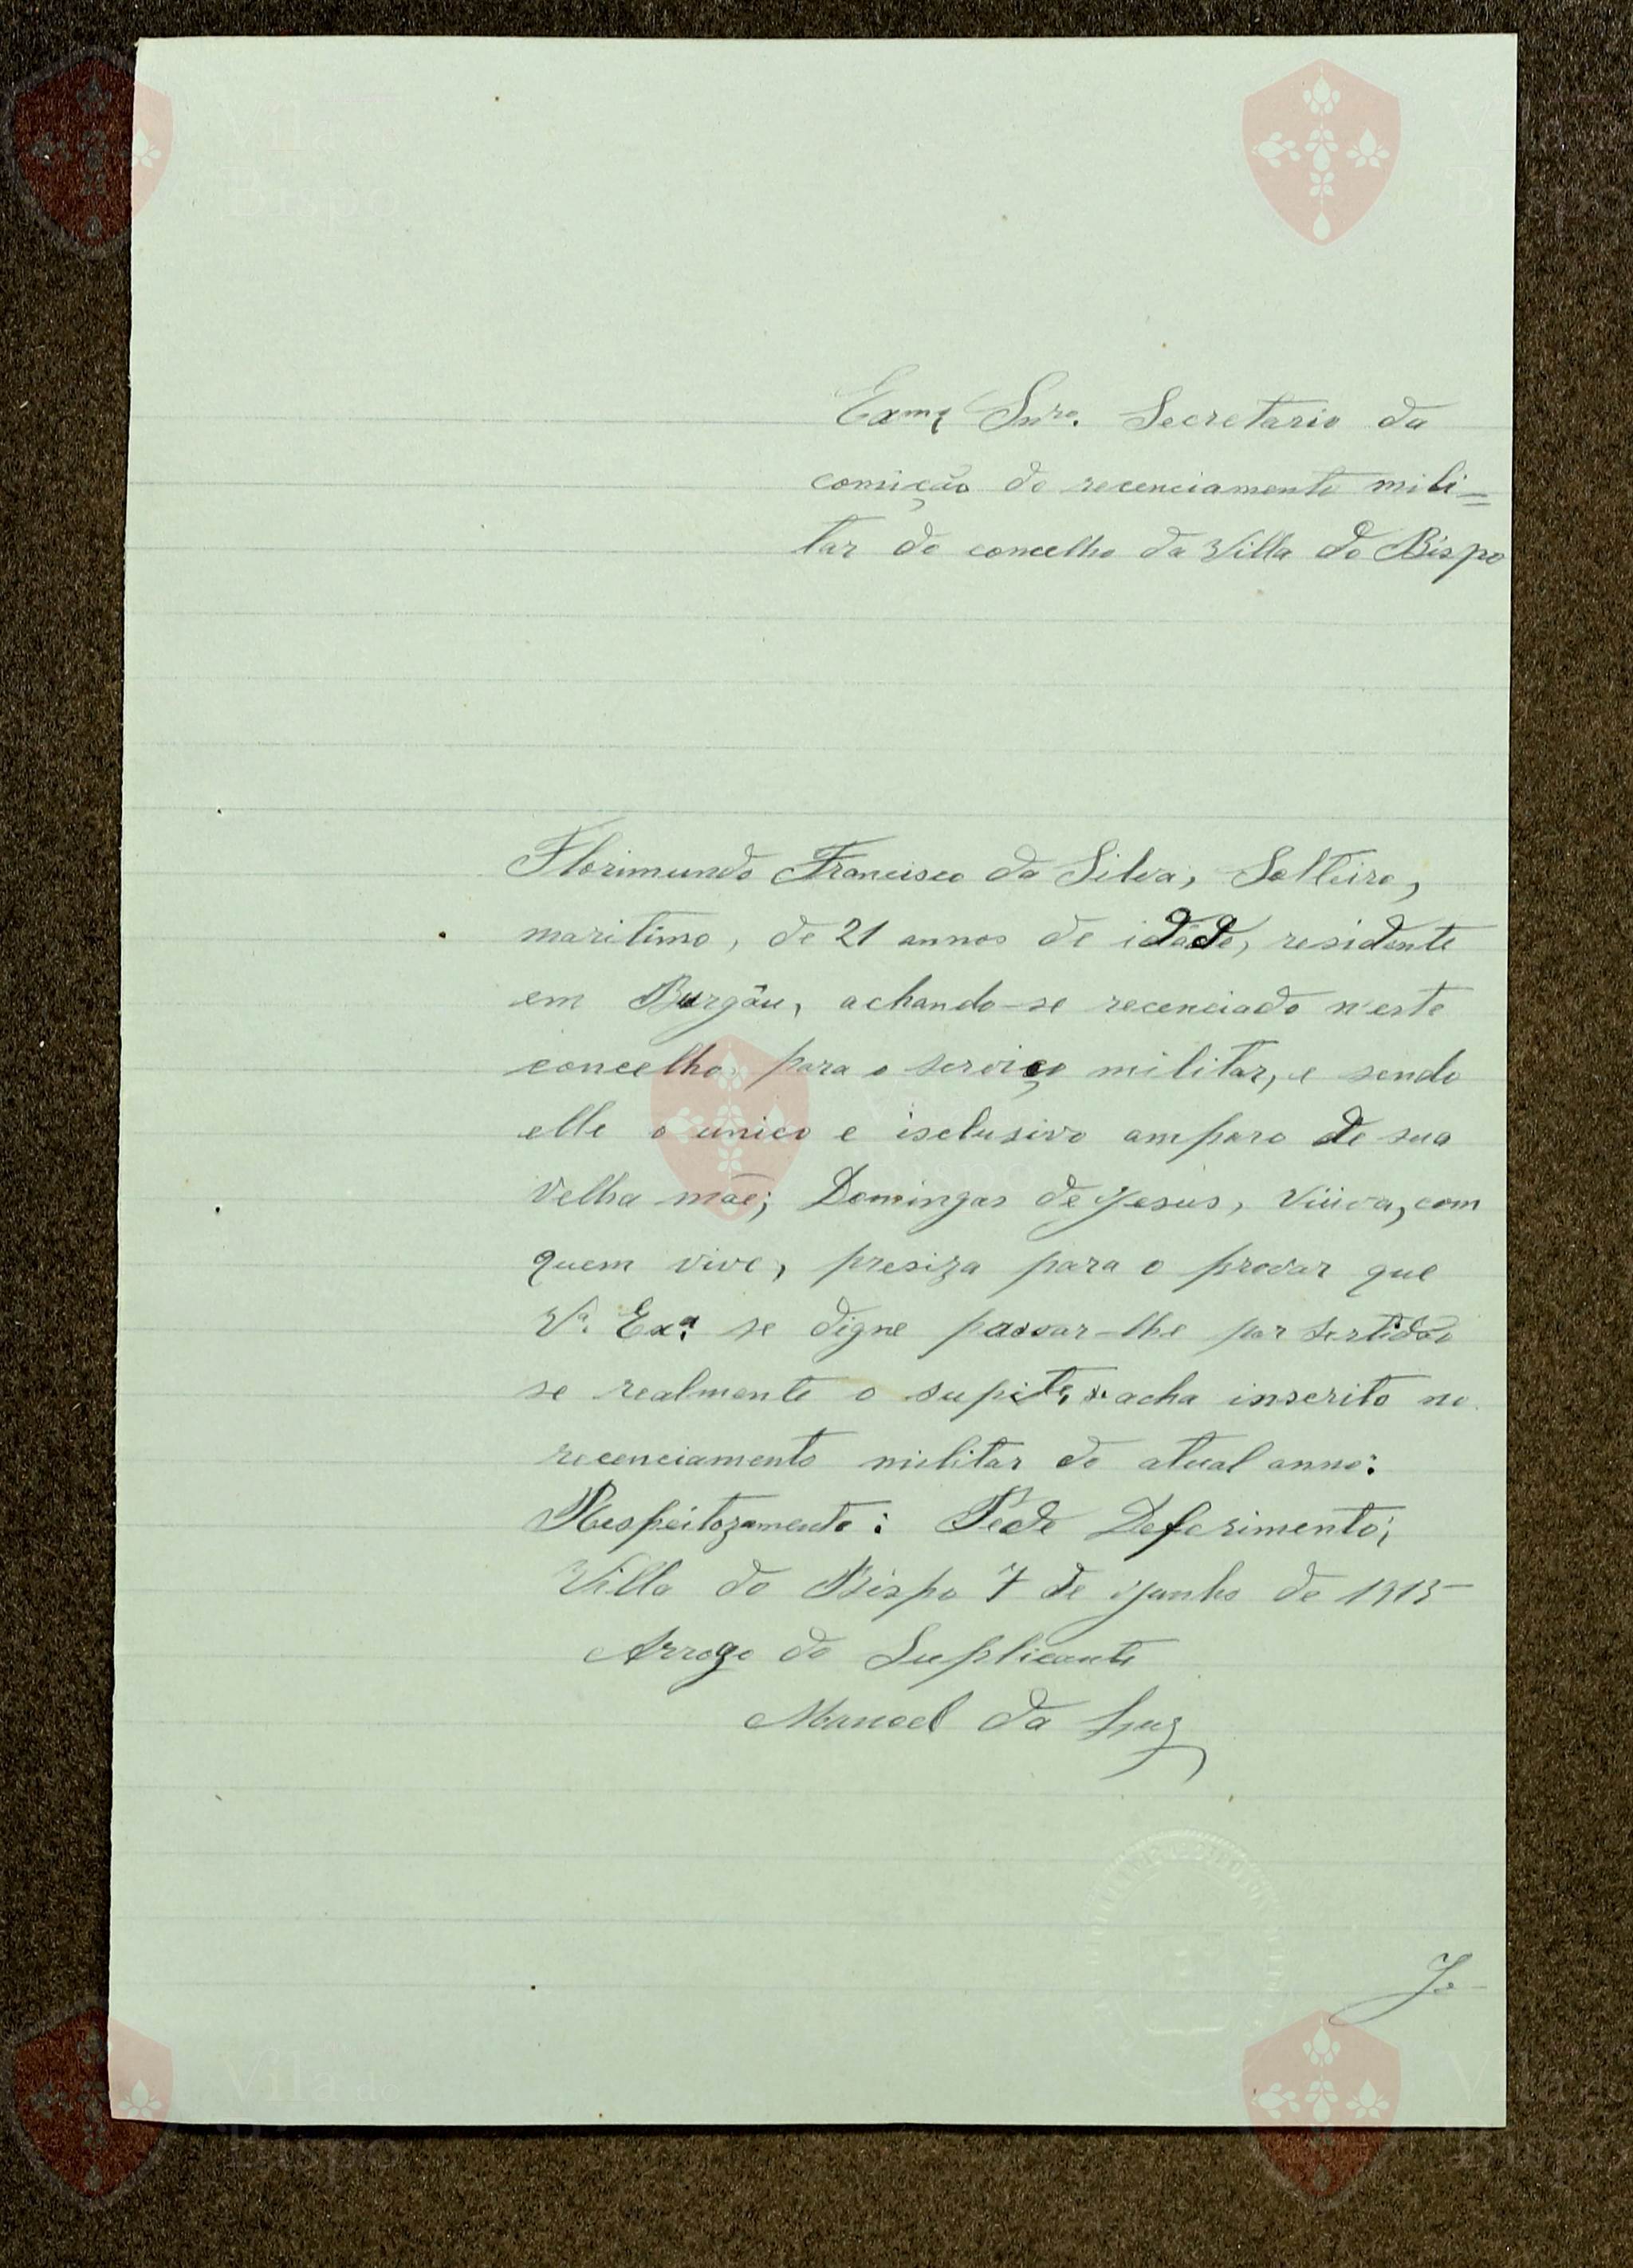 Exmº Snro. Secretario da
comição do recenciamento mili=
tar do concelho da Villa do Bispo
Florimundo Francisco da Silva, Solteiro,
maritimo, de 21 annos de idade, residente
em Burgáu, achando-se recenciado n'este
concelho para o serviço militar, e sendo
elle o unico e isclusivo amparo de sua
velha mãe; Domingas de Jesus, Viúva, com
quem vive, presiza para o provar que
Vª. Exª. se digne passar-lhe por sertidão
se realmente o supite, se acha inscrito no
recenciamento militar do atual anno:
Respeitozamente: Pede Deferimento;
Villa do Bispo 7 de Junho de 1915
Arrogo do Suplicante
Manoel da Luz